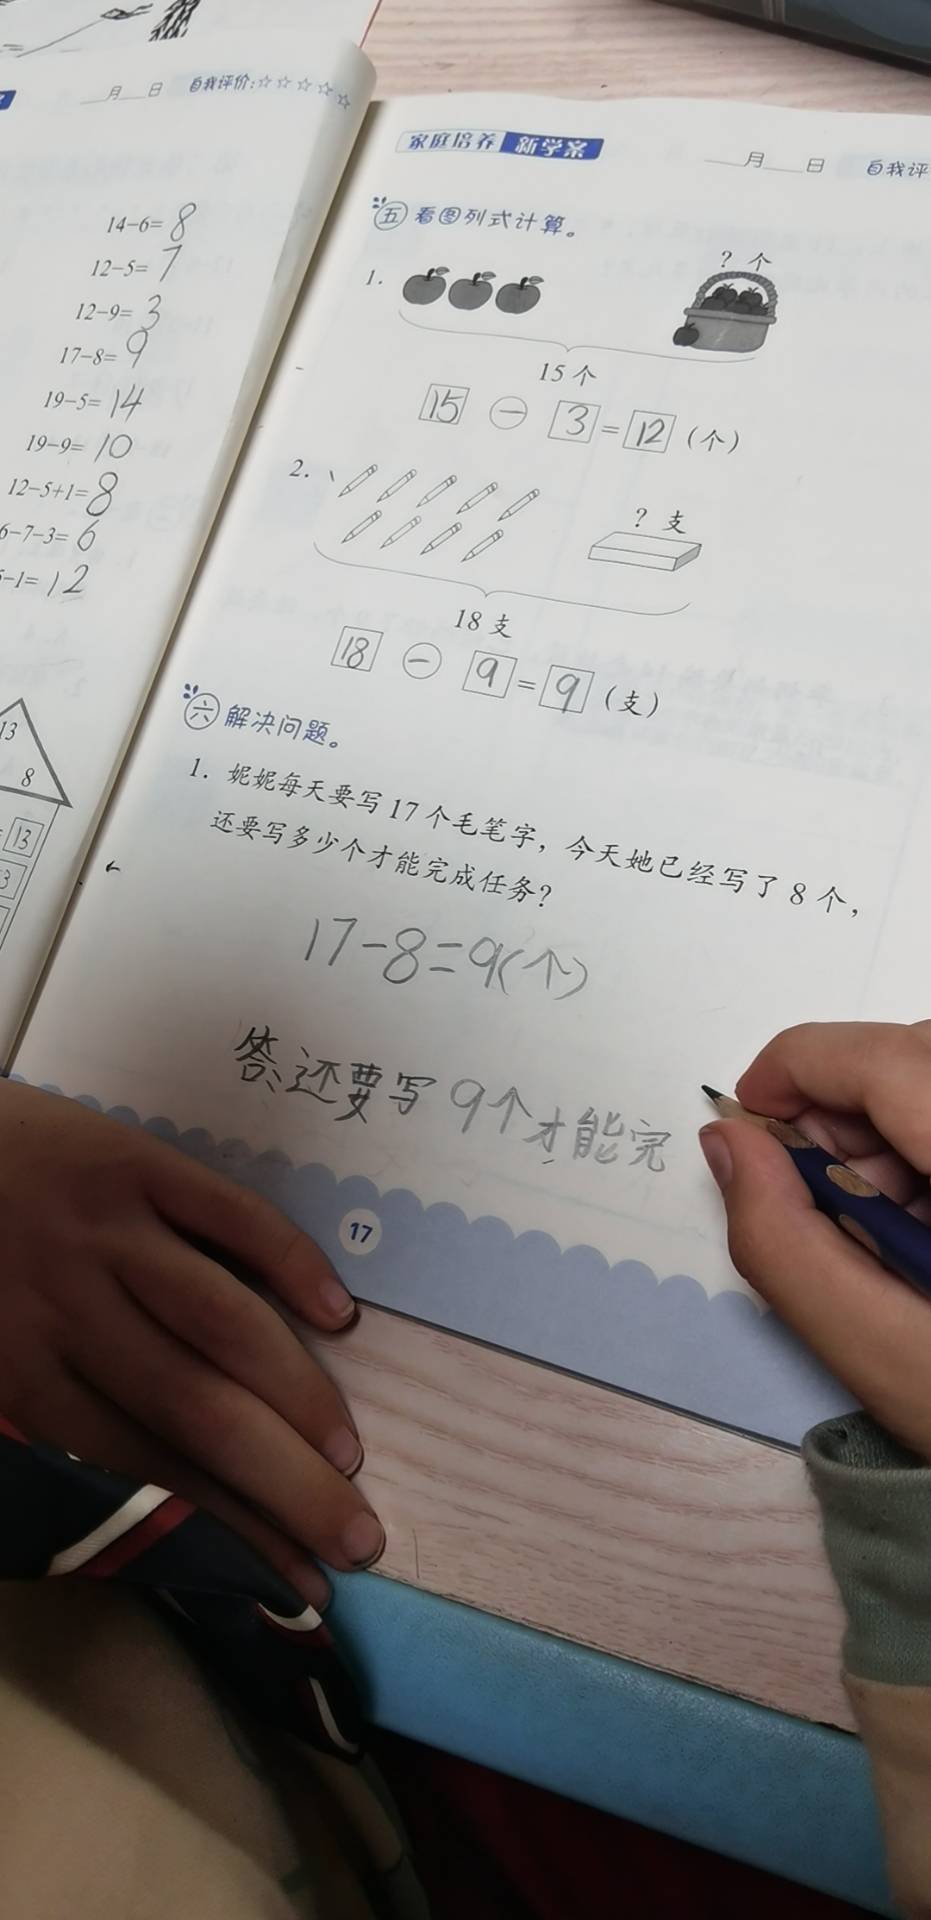 月 日 自我评价:☆☆☆☆☆
14-6=8
12-5=7
12-9=3
17-8=9
19-5=14
19-9=10
12-5+1=8
6-7-3=6
-1=12
13
8
=13
3
家庭培养 新学案
月 日 自我评
五 看图列式计算。
1.
? 个
15 个
15 - 3 = 12 (个)
2.
? 支
18 支
18 - 9 = 9 (支)
六 解决问题。
1. 妮妮每天要写 17 个毛笔字，今天她已经写了 8 个，
还要写多少个才能完成任务?
17-8=9(个)
答:还要写9个才能完
17